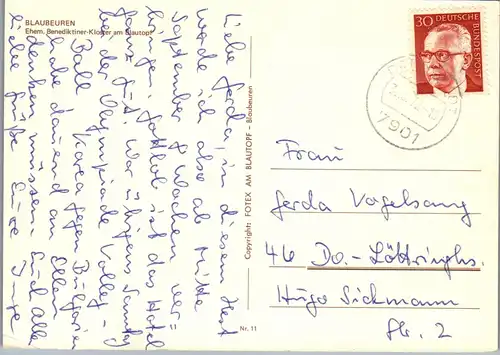 BLAUBEUREN
Ehem. Benediktiner-Kloster am Blautopf
Liebe Gerda, in diesem Herbst
werde ich also ab Mitte
September 4 Wochen ver-
bringen. Gottlob ist das Hotel
ganz fest. War übrigens Samstag
bei der Olympiade Volley-
Ball Korea gegen Bulgarien
habe dauernd an Ellen
denken müssen. Euch allen
liebe Grüße Eure Inge
Copyright: FOTEX AM BLAUTOPF - Blaubeuren
11
Nr. 11
30 DEUTSCHE
BUNDESPOST
7901
Frau
Gerda Vogelsang
46 Do.-Löttringhs.
Hugo Sickmann
Str. 2